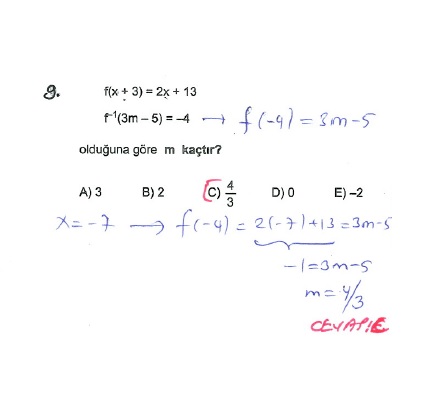 9. f(x + 3) = 2x + 13
f⁻¹(3m – 5) = –4 → f(-4) = 3m-5
olduğuna göre m kaçtır?
A) 3 B) 2 C) 4/3 D) 0 E) –2
x = -7 → f(-4) = 2(-7)+13 = 3m-5
-1 = 3m-5
m = 4/3
CEVAP:E